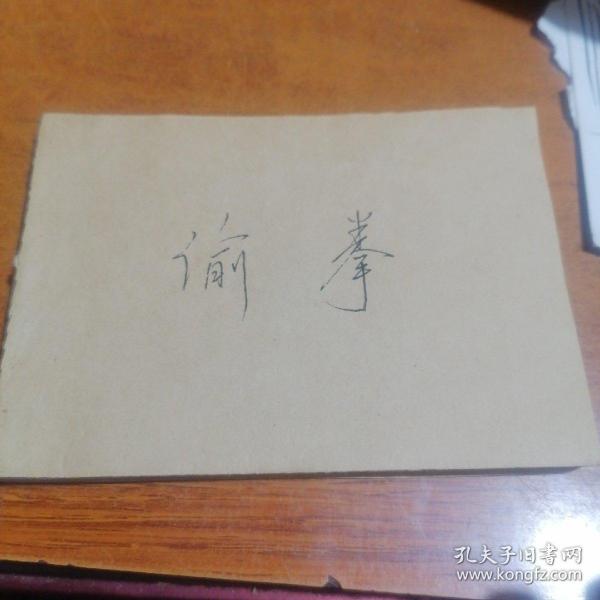 偷 拳
孔夫子旧书网
www.kongfz.com